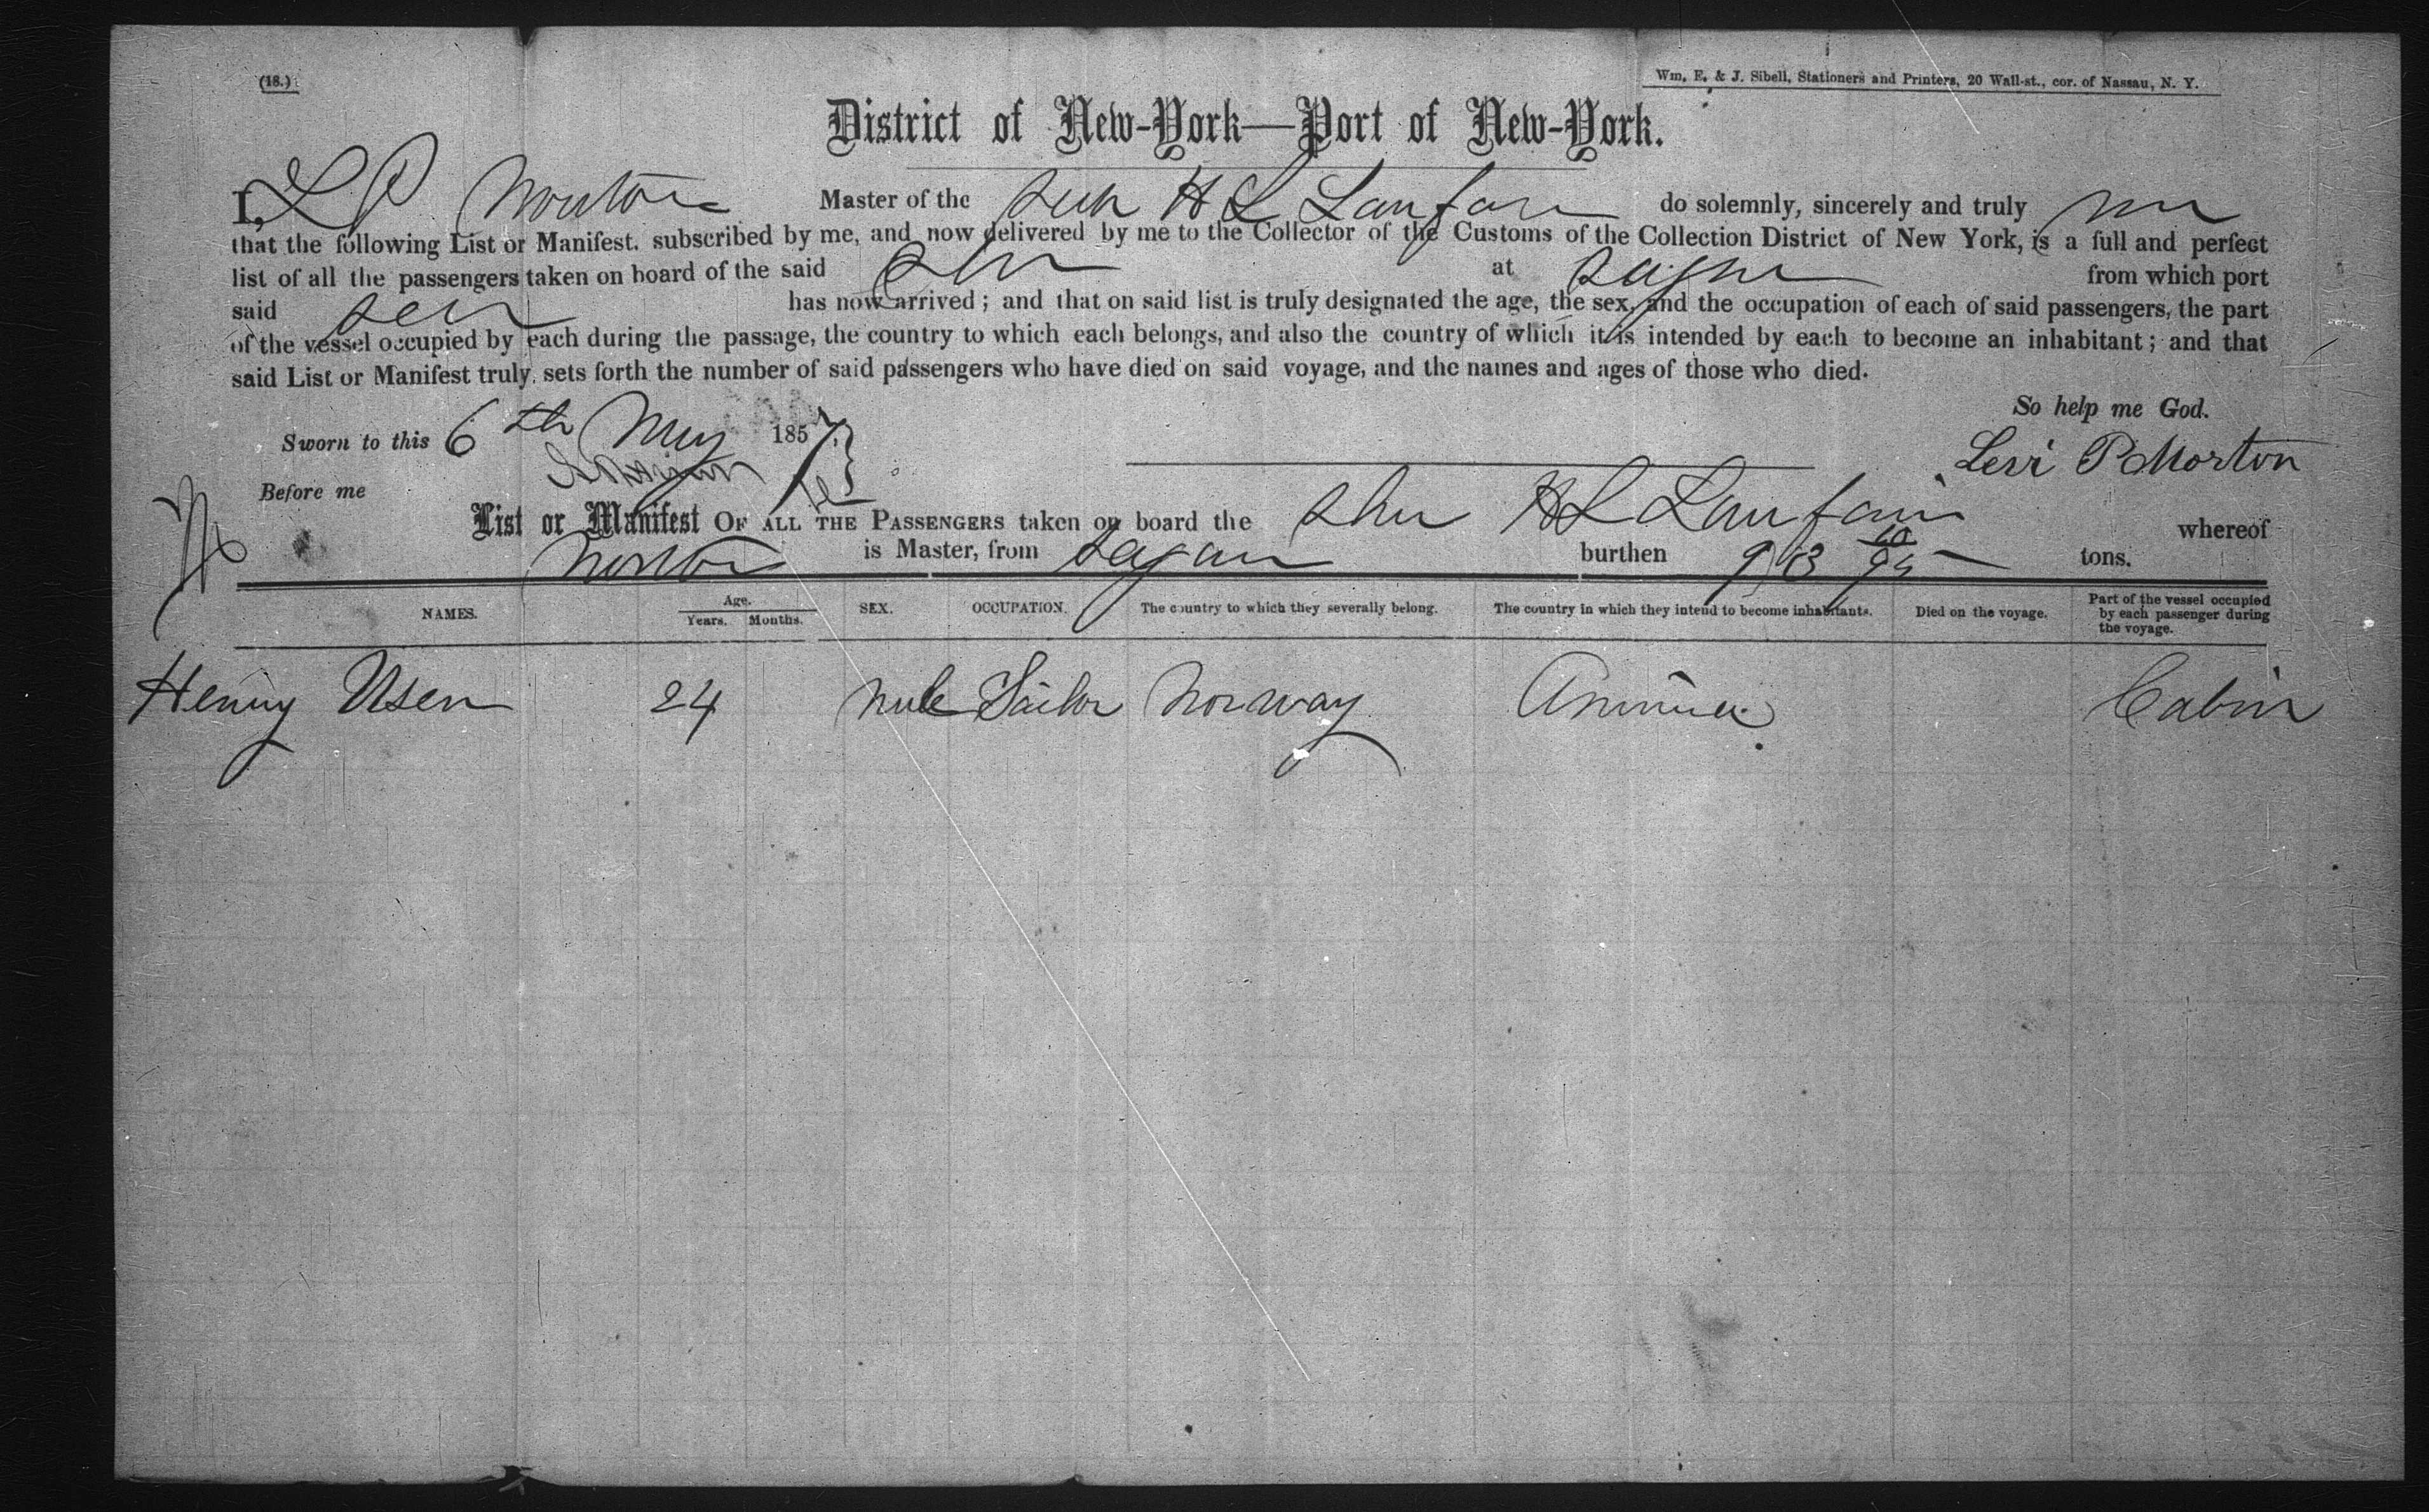 (18.)
Wm. E. & J. Sibell, Stationers and Printers, 20 Wall-st., cor. of Nassau, N. Y.
District of New-York—Port of New-York.
I, L P Morton Master of the Sch H L Lanfair do solemnly, sincerely and truly
that the following List or Manifest, subscribed by me, and now delivered by me to the Collector of the Customs of the Collection District of New York, is a full and perfect
list of all the passengers taken on board of the said Sch at Sagua from which port
said Sch has now arrived; and that on said list is truly designated the age, the sex, and the occupation of each of said passengers, the part
of the vessel occupied by each during the passage, the country to which each belongs, and also the country of which it is intended by each to become an inhabitant; and that
said List or Manifest truly sets forth the number of said passengers who have died on said voyage, and the names and ages of those who died.
So help me God.
Sworn to this 6th May 1857
Levi P Morton
Before me
List or Manifest OF ALL THE PASSENGERS taken on board the H L Lanfair whereof
Morton is Master, from Sagua burthen tons.
NAMES. Age. Years. Months. SEX. OCCUPATION. The country to which they severally belong. The country in which they intend to become inhabitants. Died on the voyage. Part of the vessel occupied by each passenger during the voyage.
Henry 24 male Sailor Norway America Cabin